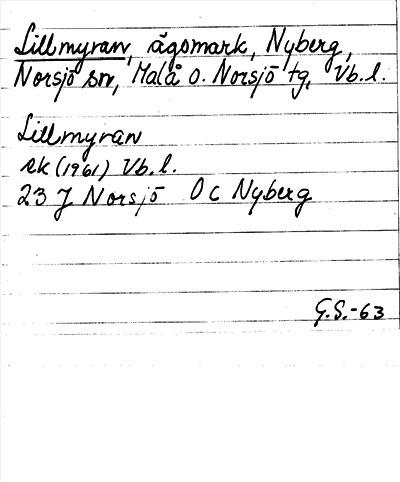 Lillmyran, ägomark, Nyberg,
Norsjö sn, Malå o. Norsjö tg, Vb. l.
Lillmyran
ek (1961) Vb. l.
23 J Norsjö 0 c Nyberg
G.S.-63